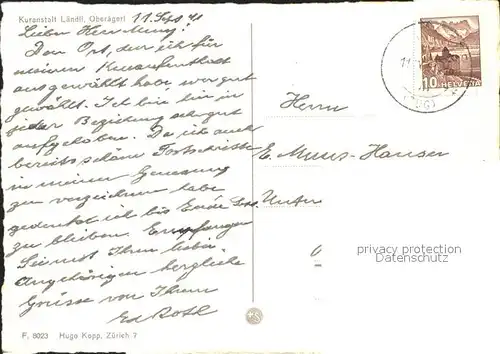 Kuranstalt Ländli, Oberägeri
11. Sept. 41
Lieber Herr Muug!
Den Ort, der ich für
meinen Kuraufenthalt
ausgewählt habe, war gut
gewählt. Ich bin hin in
jeder Beziehung sehr gut
aufgehoben. Da ich auch
bereits schöne Fortschritte
in meiner Genesung
zu verzeichnen habe
gedenke ich bis Ende Sept.
zu bleiben. Empfangen
Sie mit Ihren lieben
Angehörigen herzliche
Grüsse von Ihrem
Ed. Roth
F. 8023 Hugo Kopp, Zürich 7
10 HELVETIA
11.
(ZUG)
Herrn
E. Muus-Hauser
Unter
privacy protection
Datenschutz